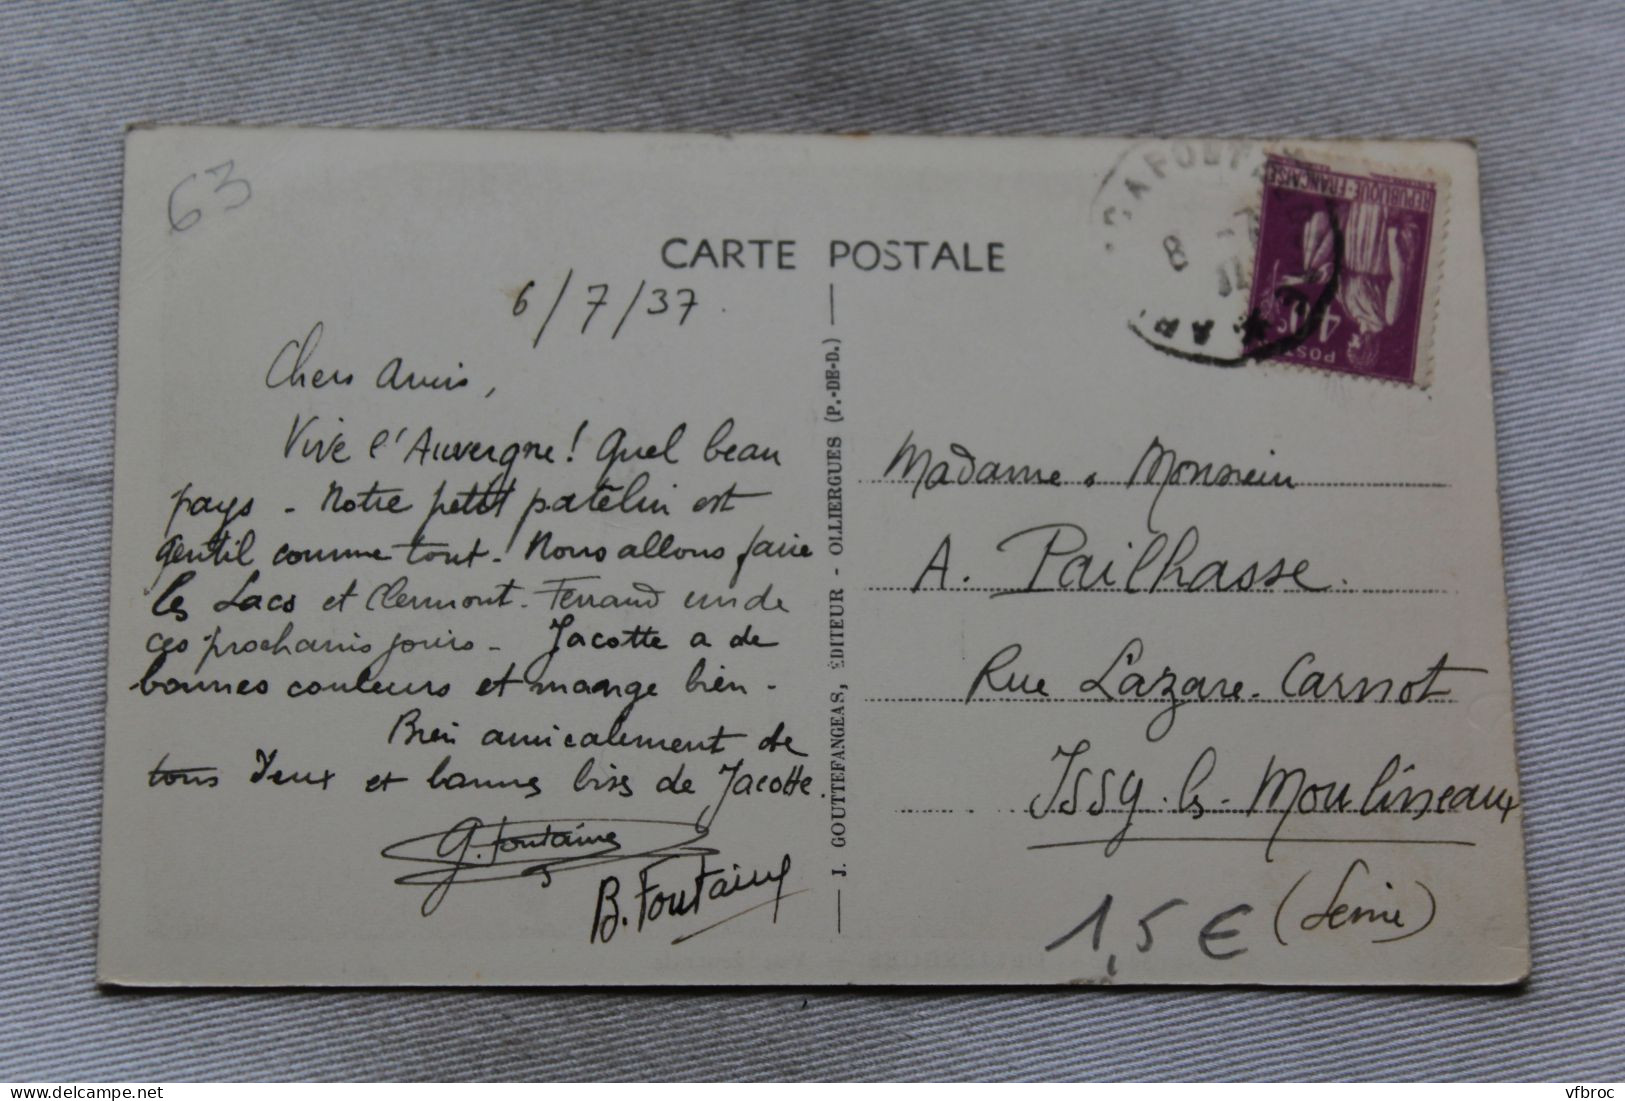 63
CARTE POSTALE
6/7/37.
Chers Amis,
Vive l'Auvergne! Quel beau
pays - Notre petit patelin est
gentil comme tout. Nous allons faire
les Lacs et Clermont-Ferrand un de
ces prochains jours - Jacotte a de
bonnes couleurs et mange bien -
Bien amicalement de
tous deux et bonnes bises de Jacotte.
G. Fontaine
B. Fontaine
J. GOUTTEFANGEAS, ÉDITEUR - OLLIERGUES (P.-DE-D.)
REPUBLIQUE-FRANÇAISE
40c
POSTES
Madame & Monsieur
A. Pailhasse.
Rue Lazare-Carnot
Issy-les-Moulineaux
(Seine)
1,5 €
vfbroc